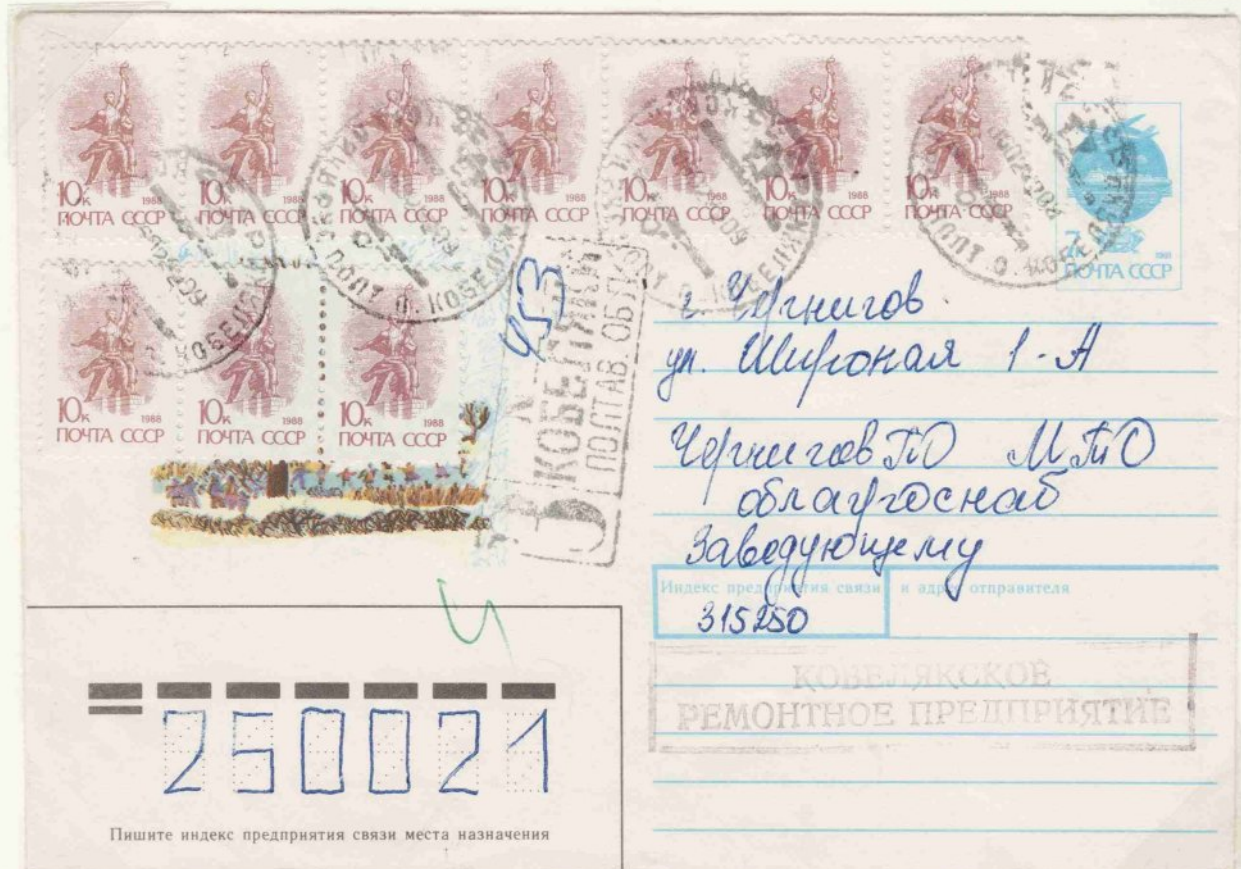 10к 1988
ПОЧТА СССР
10к 1988
ПОЧТА СССР
10к 1988
ПОЧТА СССР
10к 1988
ПОЧТА СССР
10к 1988
ПОЧТА СССР
10к 1988
ПОЧТА СССР
10к 1988
ПОЧТА СССР
7к 1991
ПОЧТА СССР
10к 1988
ПОЧТА СССР
10к 1988
ПОЧТА СССР
10к 1988
ПОЧТА СССР
КОБЕЛЯКИ
КОБЕЛЯКИ
КОБЕЛЯКИ
КОБЕЛЯКИ
З
КОБЕЛЯКИ
ПОЛТАВ. ОБЛ.
953
г. Чернигов
ул. Широкая 1-А
Чернигов ПО МТО
облагроснаб
Заведующему
Индекс предприятия связи и адрес отправителя
315250
КОБЕЛЯКСКОЕ
РЕМОНТНОЕ ПРЕДПРИЯТИЕ
250021
Пишите индекс предприятия связи места назначения